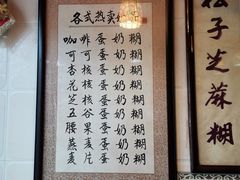 各式热卖
咖啡蛋奶糊
可可蛋奶糊
杏核蛋奶糊
花核蛋奶糊
芝核蛋奶糊
五谷蛋奶糊
腰果蛋奶糊
燕麦蛋奶糊
麦片蛋奶糊
松子芝蔴糊